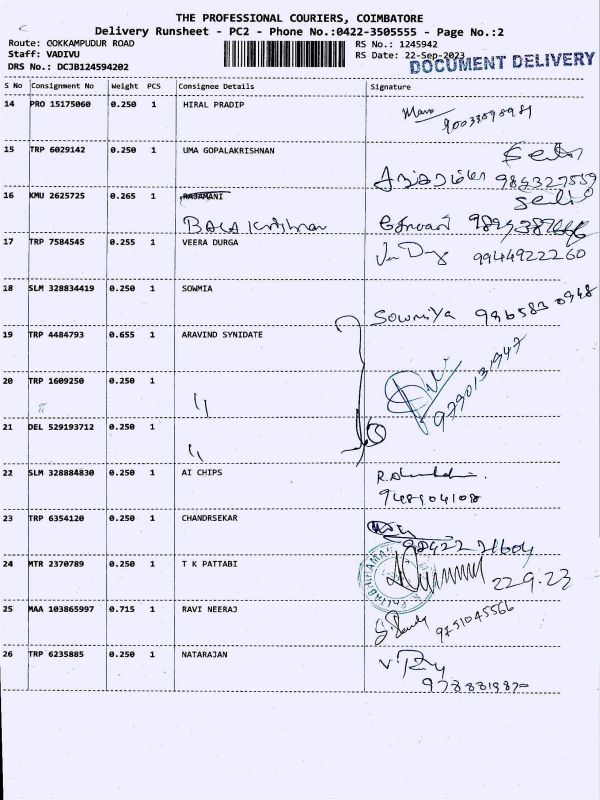 THE PROFESSIONAL COURIERS, COIMBATORE
Delivery Runsheet - PC2 - Phone No.:0422-3505555 - Page No.:2
Route: OOKKAMPUDUR ROAD
RS No.: 1245942
Staff: VADIVU
RS Date: 22-Sep-2023
DOCUMENT DELIVERY
DRS No.: DCJB124594202
S No Consignment No Weight PCS Consignee Details Signature
14 PRO 15175060 0.250 1 HIRAL PRADIP
15 TRP 6029142 0.250 1 UMA GOPALAKRISHNAN
16 KMU 2625725 0.265 1 RAJAMANI
17 TRP 7584545 0.255 1 VEERA DURGA
9944922260
18 SLM 328834419 0.250 1 SOWMIA
Sowmiya
19 TRP 4484793 0.655 1 ARAVIND SYNIDATE
9790131947
20 TRP 1609250 0.250 1
21 DEL 529193712 0.250 1
22 SLM 328884830 0.250 1 AI CHIPS
9489104108
23 TRP 6354120 0.250 1 CHANDRSEKAR
24 MTR 2370789 0.250 1 T K PATTABI
22.9.23
25 MAA 103865997 0.715 1 RAVI NEERAJ
9751045566
26 TRP 6235885 0.250 1 NATARAJAN